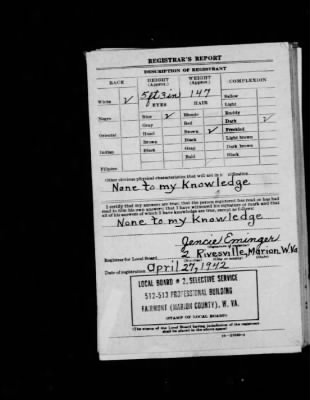 REGISTRAR'S REPORT
DESCRIPTION OF REGISTRANT
RACE HEIGHT (Approx.) WEIGHT (Approx.) COMPLEXION
5 ft 3 in 147 Sallow
White ✓ EYES HAIR Light
Negro Blue ✓ Blonde Ruddy
Gray Red Dark ✓
Oriental Hazel Brown ✓ Freckled
Brown Black Light brown
Indian Black Gray Dark brown
Bald Black
Filipino
Other obvious physical characteristics that will aid in identification
None to my Knowledge
I certify that my answers are true; that the person registered has read or has had
read to him his own answers; that I have witnessed his signature or mark and that
all of his answers of which I have knowledge are true, except as follows:
None to my Knowledge
Jencie Eminger
(Signature of registrar)
Registrar for Local Board 2 Rivesville, Marion, W.Va
(Number) (City or county) (State)
Date of registration April 27, 1942
LOCAL BOARD # 2, SELECTIVE SERVICE
512-513 PROFESSIONAL BUILDING
FAIRMONT (MARION COUNTY), W. VA.
(STAMP OF LOCAL BOARD)
(The stamp of the Local Board having jurisdiction of the registrant
shall be placed in the above space)